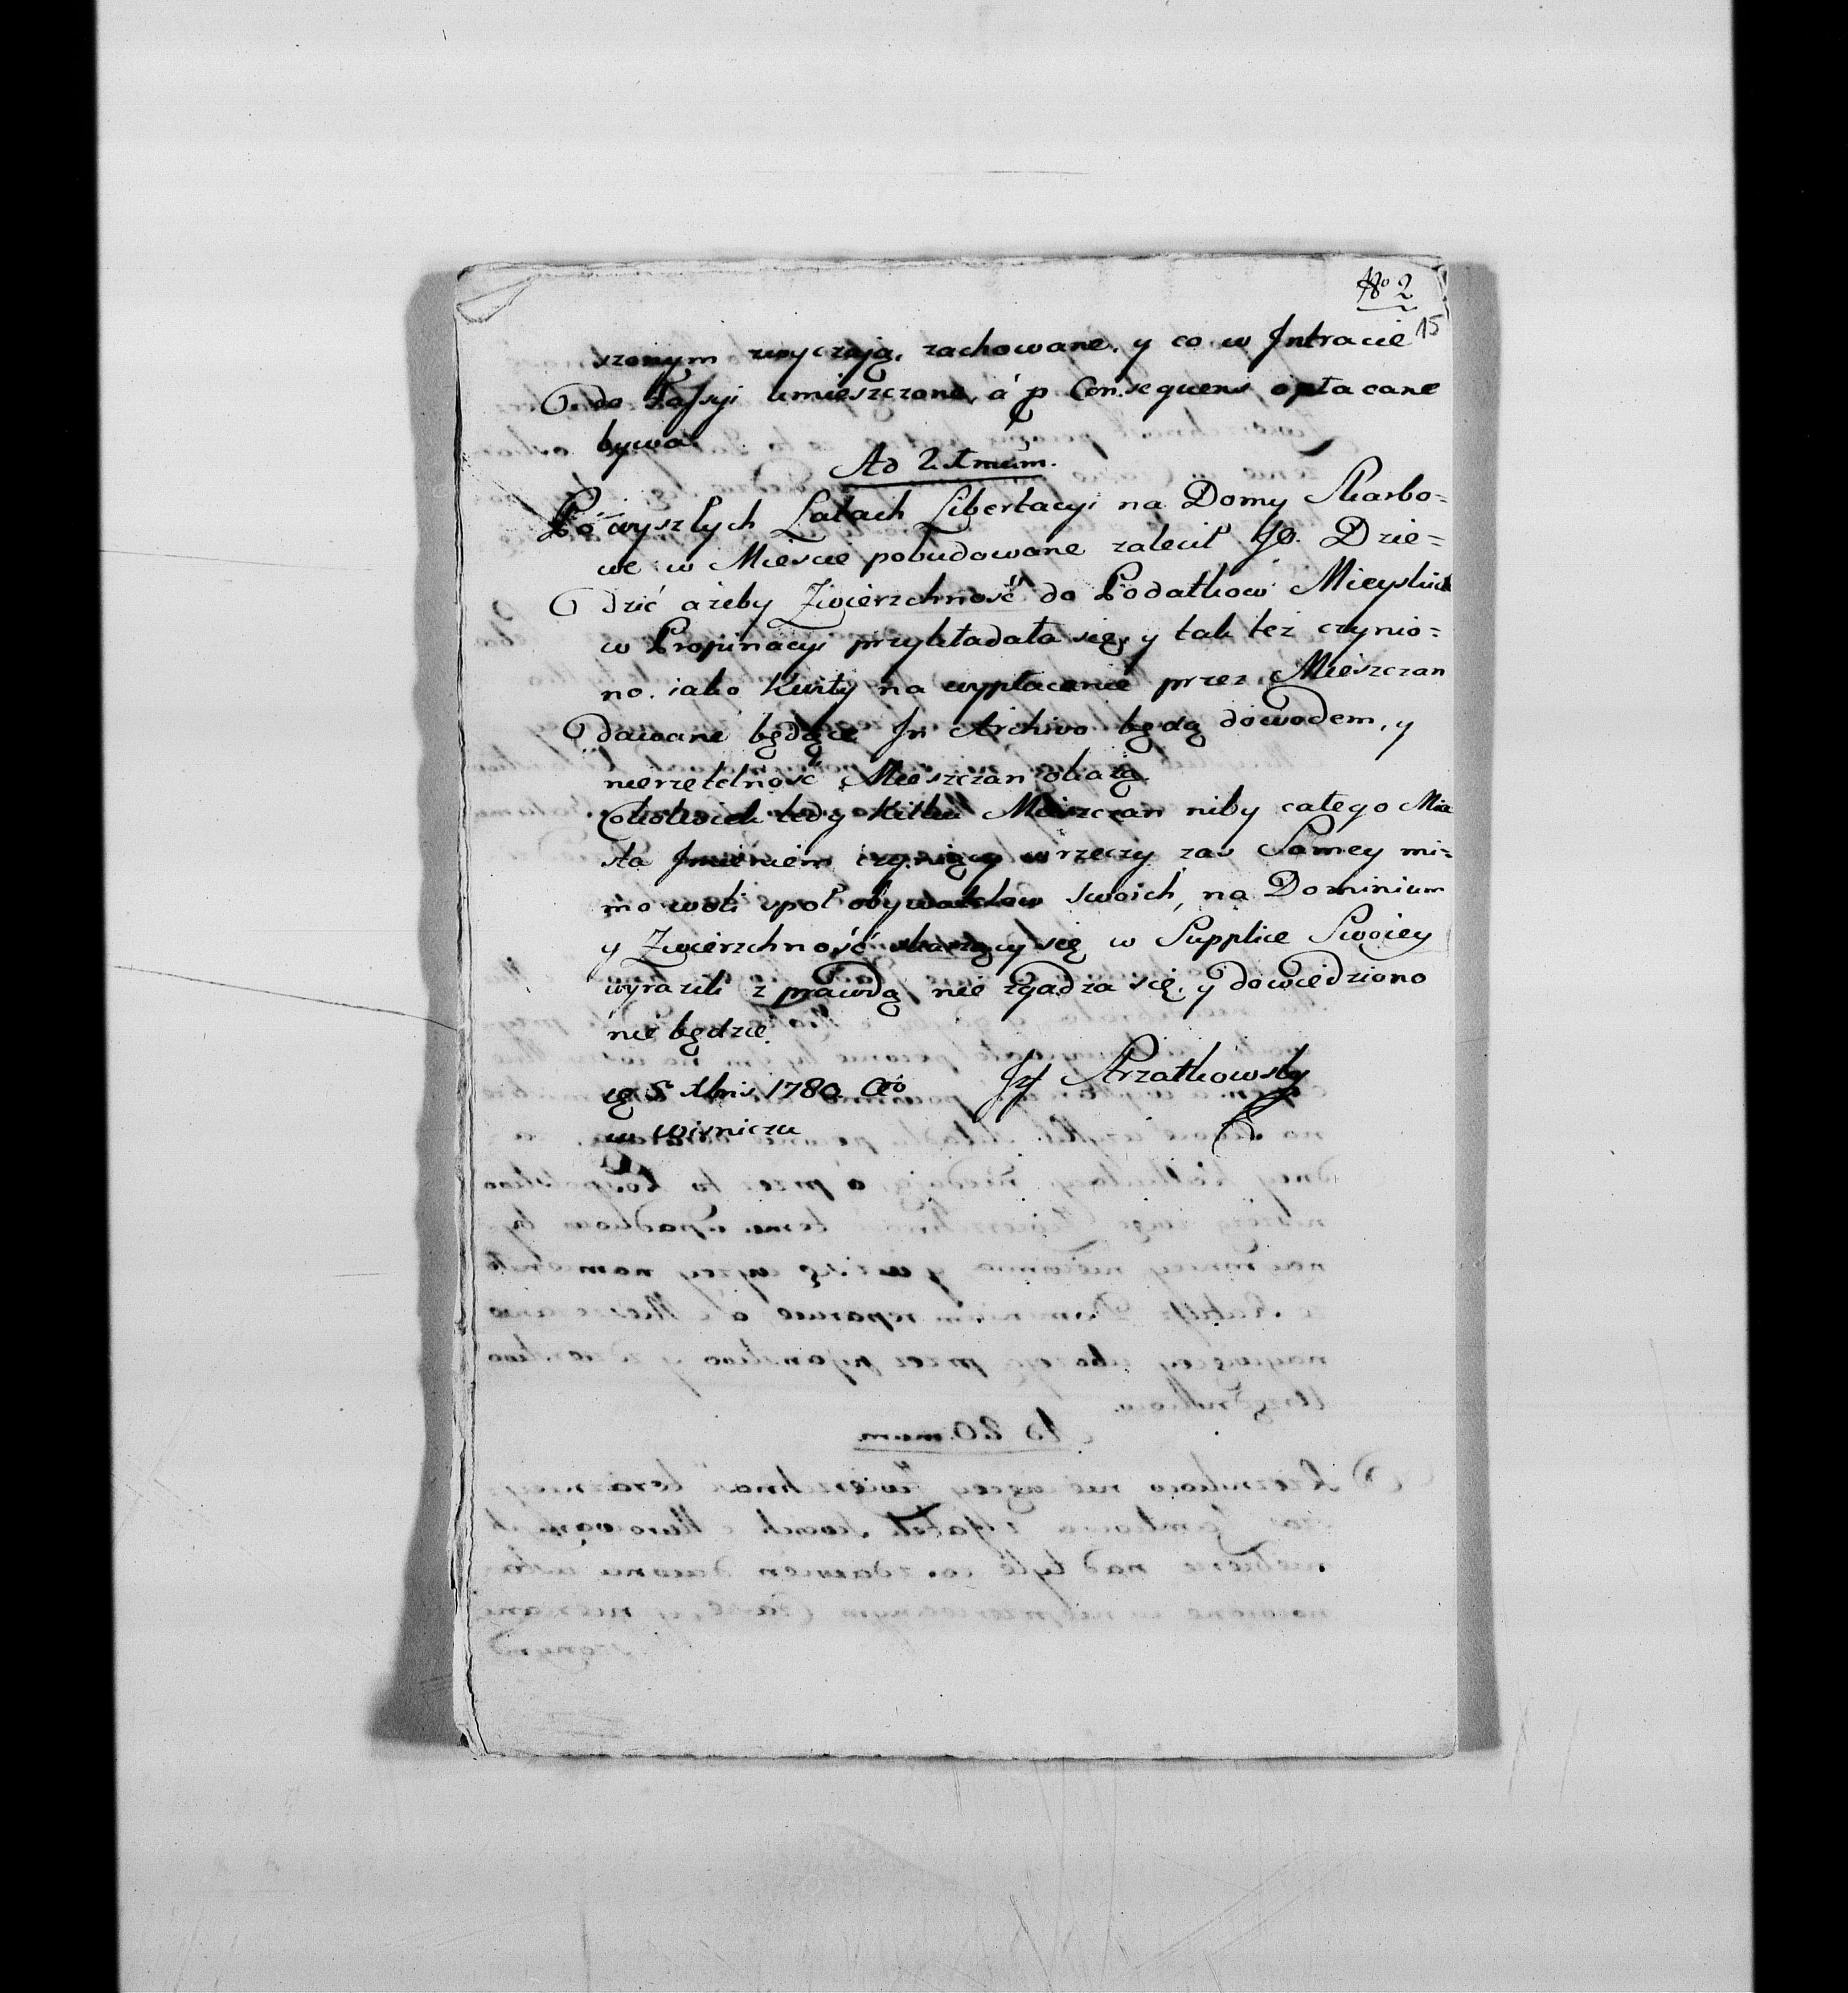 No 2
15
szonym zwyczaią, zachowane, y co w Intracie
do Fassyi umieszczone, á p Consequens opłacane
bywa.
Ad 21mum.
Po wyszłych Latach Libertacyi na Domy Skarbo=
we w Miescie pobudowane zalecił JO. Dzie=
dzić ażeby Zwierzchność do Podatkow Mieyskich
w Propinacyi przykładała się, y tak też czynio=
no. iako Kwity na wypłacenie przez Mieszczan
dawane będące In Archivo będą dowodem, y
nierzetelność Mieszczan okażą.
Cokolwiek tedy Kilku Mieszczan niby całego Mia
sta Imieniem czyniący w rzeczy zas Samey mi=
mo woli społ obywatelow Swoich, na Dominium
y Zwierzchność skarżący się w Supplice Swoiey
wyrazili z prawdą nie zgadza się, y dowiedziono
nie będzie.
5 Xbris 1780 Ao
w Wisniczu